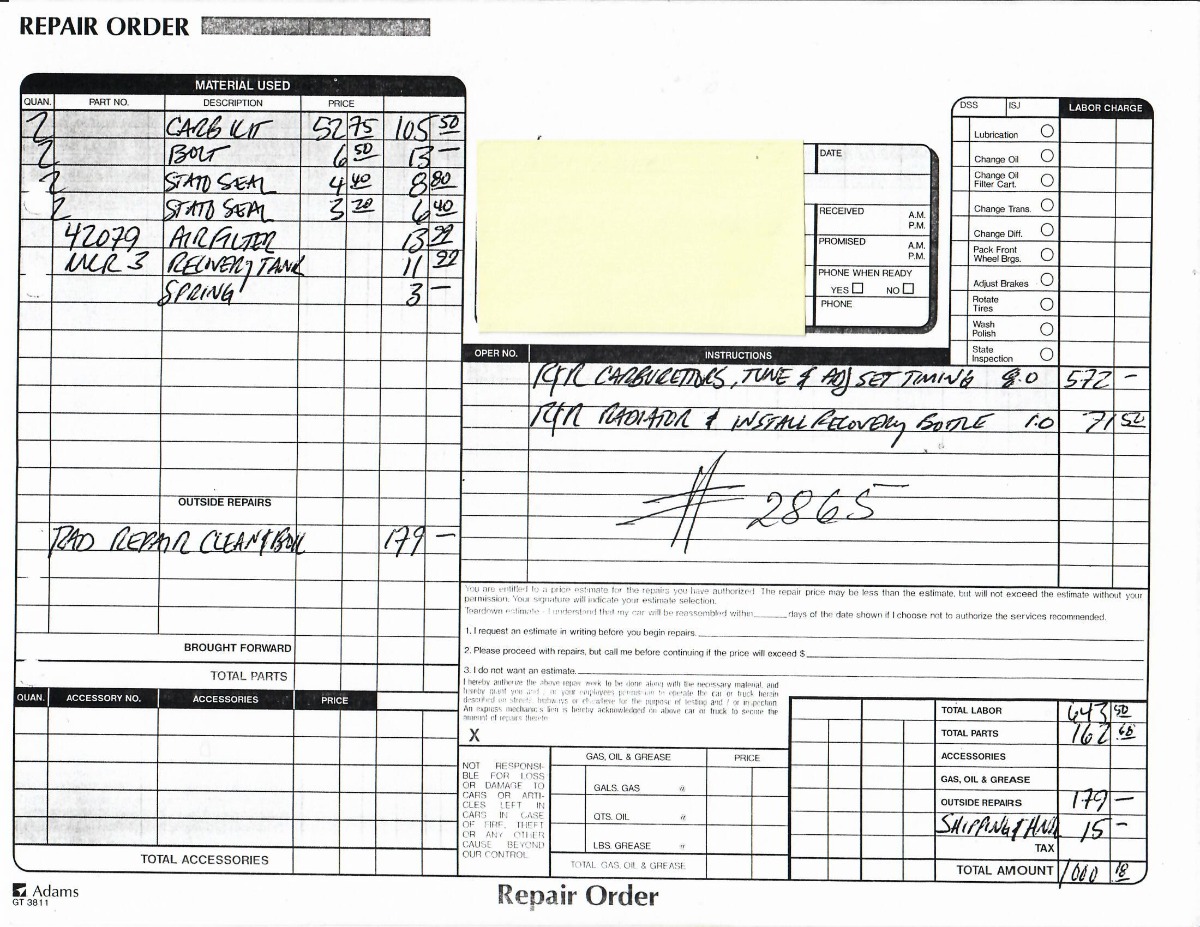 REPAIR ORDER
MATERIAL USED
QUAN. PART NO. DESCRIPTION PRICE
2 CARB KIT 52 75 105 50
2 BOLT 6 50 13 —
2 STATO SEAL 4 40 8 80
2 STATO SEAL 3 20 6 40
42079 AIR FILTER 13
MCR 3 RECOVERY TANK 11
SPRING 3 —
OUTSIDE REPAIRS
RAD REPAIR CLEAN & BOIL 179 —
BROUGHT FORWARD
TOTAL PARTS
QUAN. ACCESSORY NO. ACCESSORIES PRICE
TOTAL ACCESSORIES
DATE
RECEIVED A.M. P.M.
PROMISED A.M. P.M.
PHONE WHEN READY
YES NO
PHONE
DSS ISJ LABOR CHARGE
Lubrication
Change Oil
Change Oil
Filter Cart.
Change Trans.
Change Diff.
Pack Front
Wheel Brgs.
Adjust Brakes
Rotate
Tires
Wash
Polish
State
Inspection
OPER NO. INSTRUCTIONS
R&R CARBURETTORS, TUNE & ADJ SET TIMING 8.0 572 —
R&R RADIATOR & INSTALL RECOVERY BOTTLE 1.0 71 50
# 2865 —
You are entitled to a price estimate for the repairs you have authorized. The repair price may be less than the estimate, but will not exceed the estimate without your
permission. Your signature will indicate your estimate selection.
Teardown estimate - I understand that my car will be reassembled within ______ days of the date shown if I choose not to authorize the services recommended.
1. I request an estimate in writing before you begin repairs.
2. Please proceed with repairs, but call me before continuing if the price will exceed $
3. I do not want an estimate.
I hereby authorize the above repair work to be done along with the necessary material, and
hereby grant you and / or your employees permission to operate the car or truck herein
described on streets, highways or elsewhere for the purpose of testing and / or inspection.
An express mechanics lien is hereby acknowledged on above car or truck to secure the
amount of repairs thereto.
X
NOT RESPONSI-
BLE FOR LOSS
OR DAMAGE TO
CARS OR ARTI-
CLES LEFT IN
CARS IN CASE
OF FIRE, THEFT
OR ANY OTHER
CAUSE BEYOND
OUR CONTROL.
GAS, OIL & GREASE PRICE
GALS. GAS @
QTS. OIL @
LBS. GREASE @
TOTAL GAS, OIL & GREASE
TOTAL LABOR 643 50
TOTAL PARTS 162 68
ACCESSORIES
GAS, OIL & GREASE
OUTSIDE REPAIRS 179 —
SHIPPING & HND 15 —
TAX
TOTAL AMOUNT 1000 18
Adams
GT 3811
Repair Order